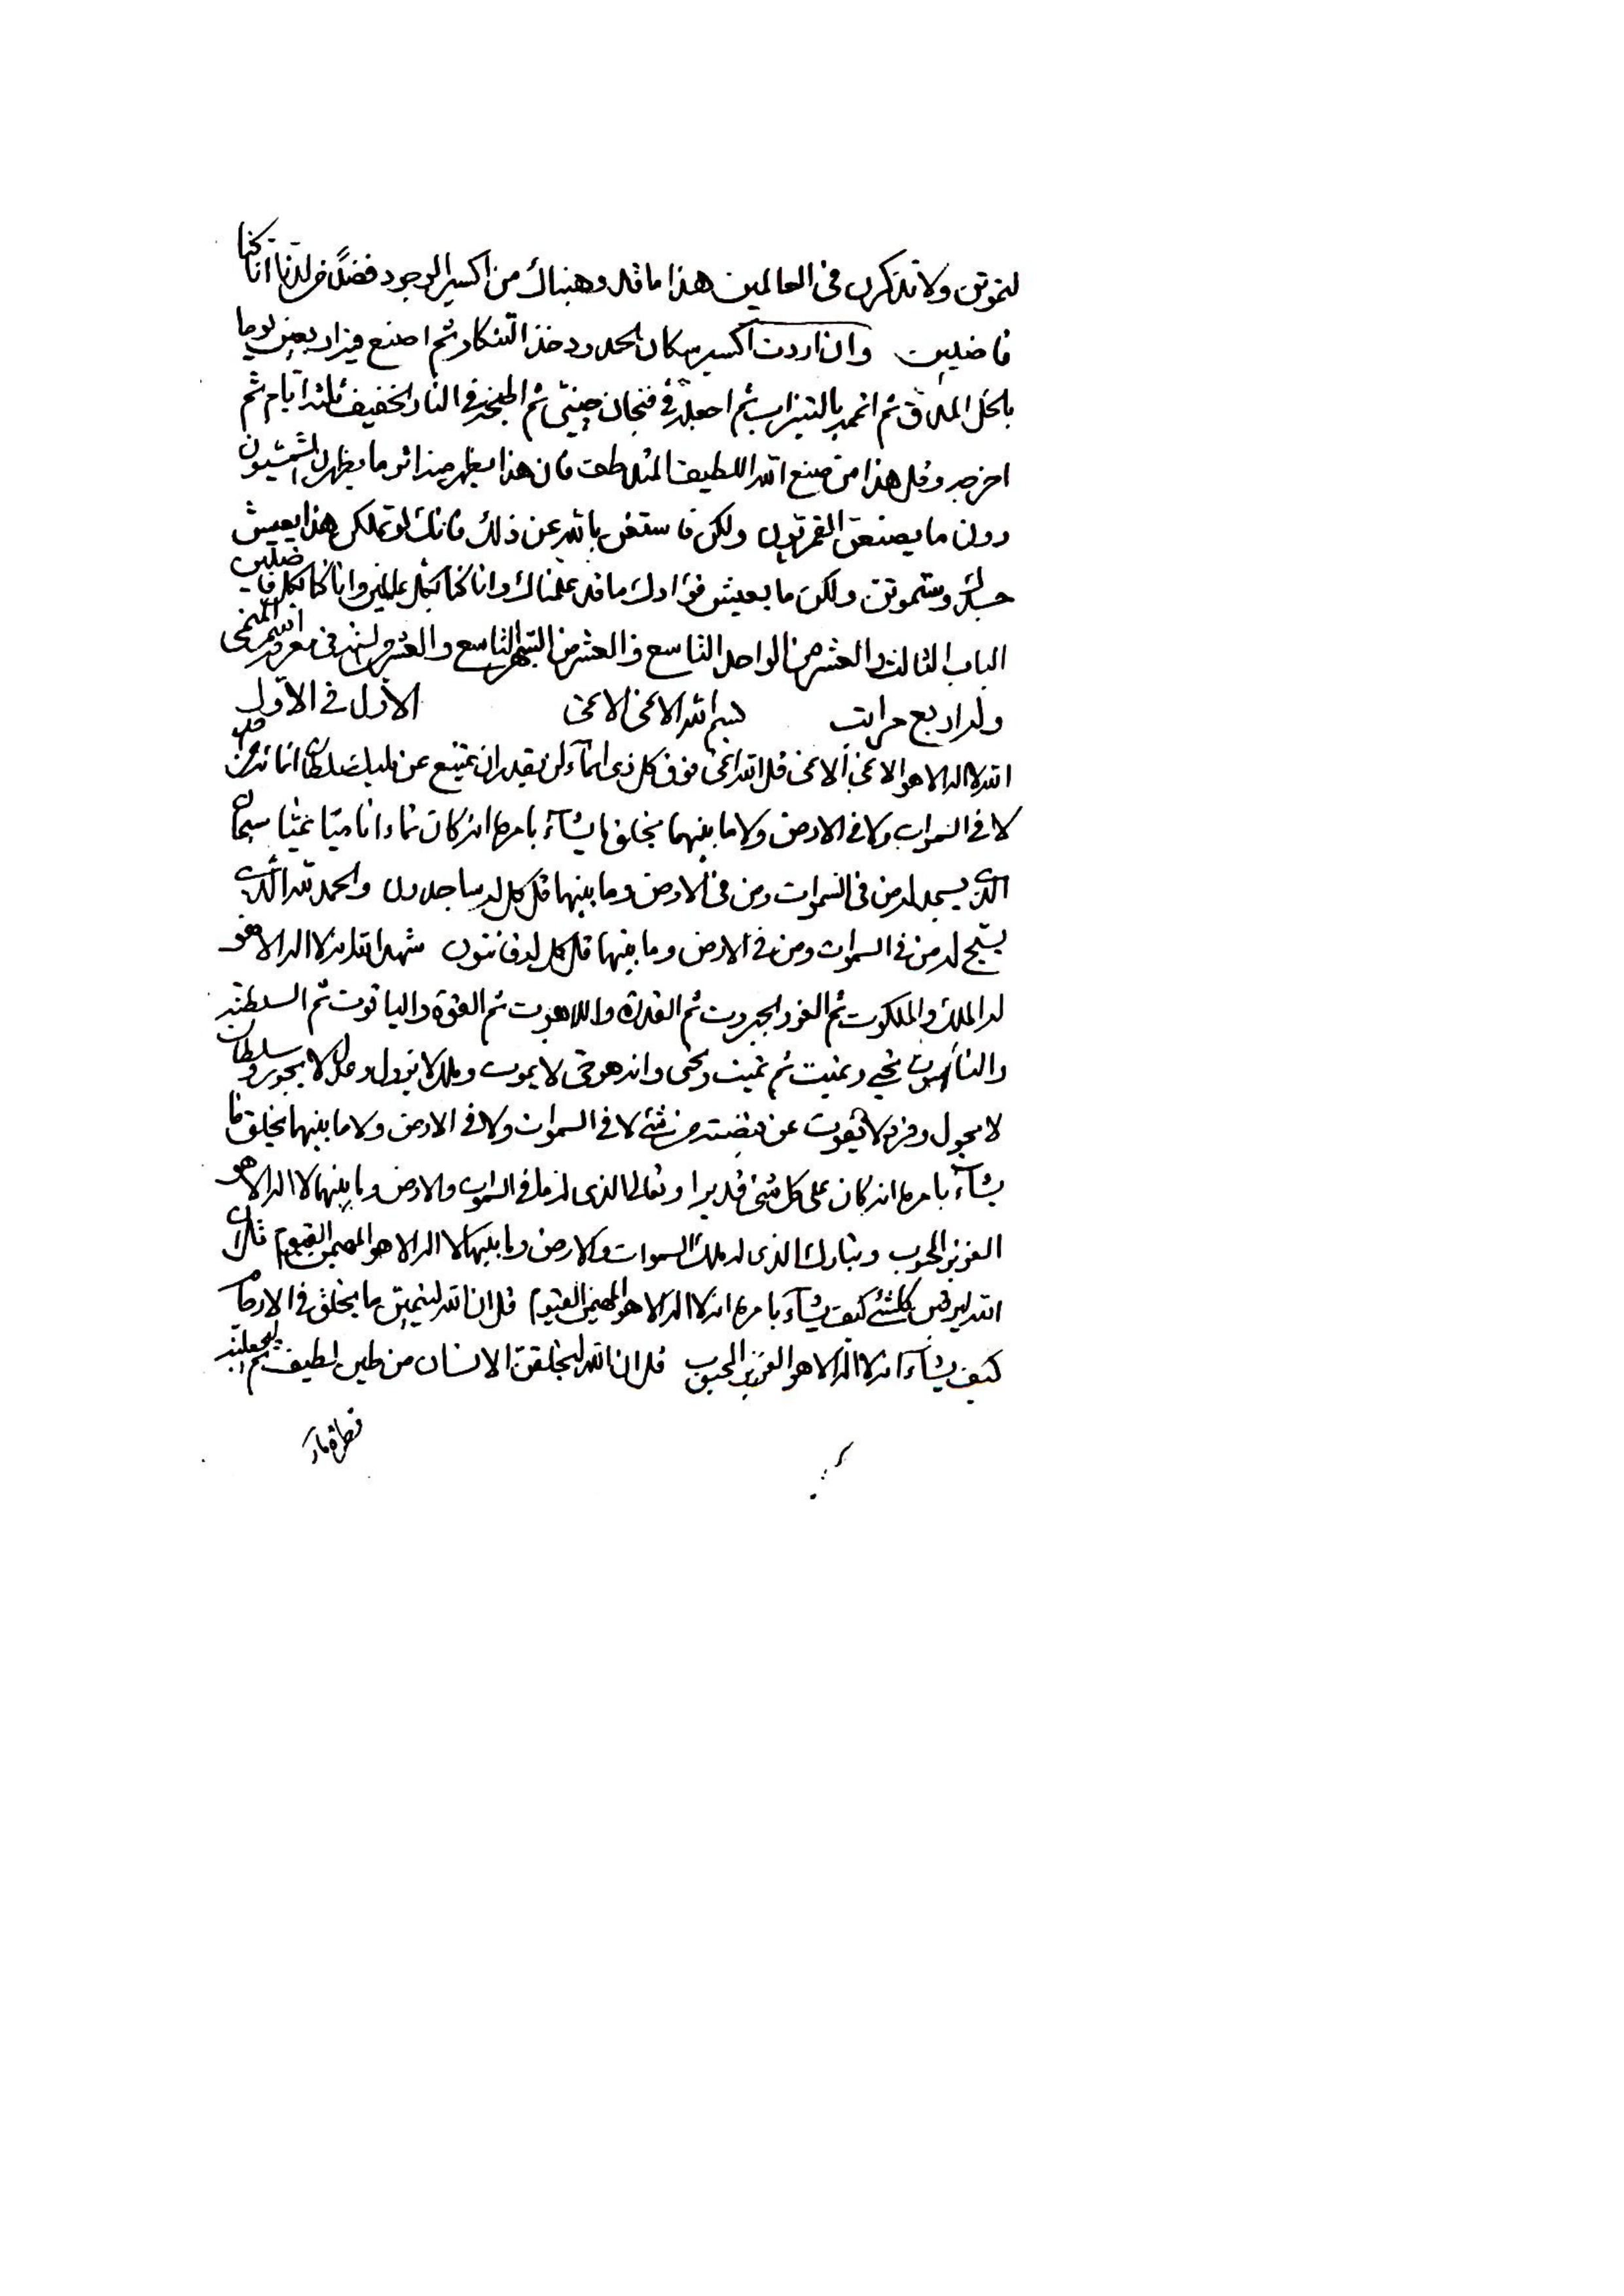 لتموتن ولا تذكرن فى العالمين هذا ما قد وهبناك من اكسير الوجود فضلا من لدنا انا كنا
فاضلين وان اردت اكسير سكان الحدود خذ التنكار ثم اصنع فيه اربعين يوما
بالخل ثم اغمد بالتيزاب ثم اجعله فى فنجان چينى ثم اطبخه فى النار الخفيف ثلثة ايام ثم
اخرجه وقل هذا من صنع الله اللطيف المتلطف فان هذا يظهر منه اثر ما يظهرن الشمسيون
دون ما يصنعن القمريون ولكن فاستغن بالله عن ذلك فانك لو تملكن هذا يعيش
جسدك وستموتن ولكن ما يعيش فؤادك ما قد علمناك وانا كنا بكل عالمين وانا كنا بكل فاضلين
الباب الثالث والعشر من الواحد التاسع والعشر من الشهر التاسع والعشر من السنة فى معرفة اسم المنمى
وله اربع مراتب بسم الله الانمى الانمى الاول فى الاول
الله لا اله الا هو الانمى الانمى قل الله انمى فوق كل ذى انماء لن يقدر ان يمتنع عن مليك سلطان انمائه من احد
لا فى السموات ولا فى الارض ولا ما بينهما يخلق ما يشاء بامره انه كان نماء ناميا نميا سبحان
الذى يسجد له من فى السموات ومن فى الارض وما بينهما قل كل له ساجدون والحمد لله الذى
يسبح له من فى السموات ومن فى الارض وما بينهما قل كل له قانتون شهد الله انه لا اله الا هو
له الملك والملكوت ثم العز والجبروت ثم القدرة واللاهوت ثم القوة والياقوت ثم السلطنة
والناسوت يحيى ويميت ثم يميت ويحيى وانه هو حى لا يموت وملك لا يزول وعدل لا يجور وسلطان
لا يحول وفرد لا يفوت عن قبضته من شئ لا فى السموات ولا فى الارض ولا ما بينهما يخلق ما
يشاء بامره انه كان على كل شئ قديرا وتعالى الذى له ما فى السموات والارض وما بينهما لا اله الا هو
العزيز المحبوب وتبارك الذى له ملك السموات والارض وما بينهما لا اله الا هو المهيمن القيوم قل ان
الله ليرفعن كلشئ كيف يشاء بامره انه لا اله الا هو المهيمن القيوم قل ان الله لينمين ما يخلق فى الارحام
كيف يشاء انه لا اله الا هو العزيز المحبوب قل ان الله ليخلقن الانسان من طين لطيف ثم ليجعلنه
قطرة ماء